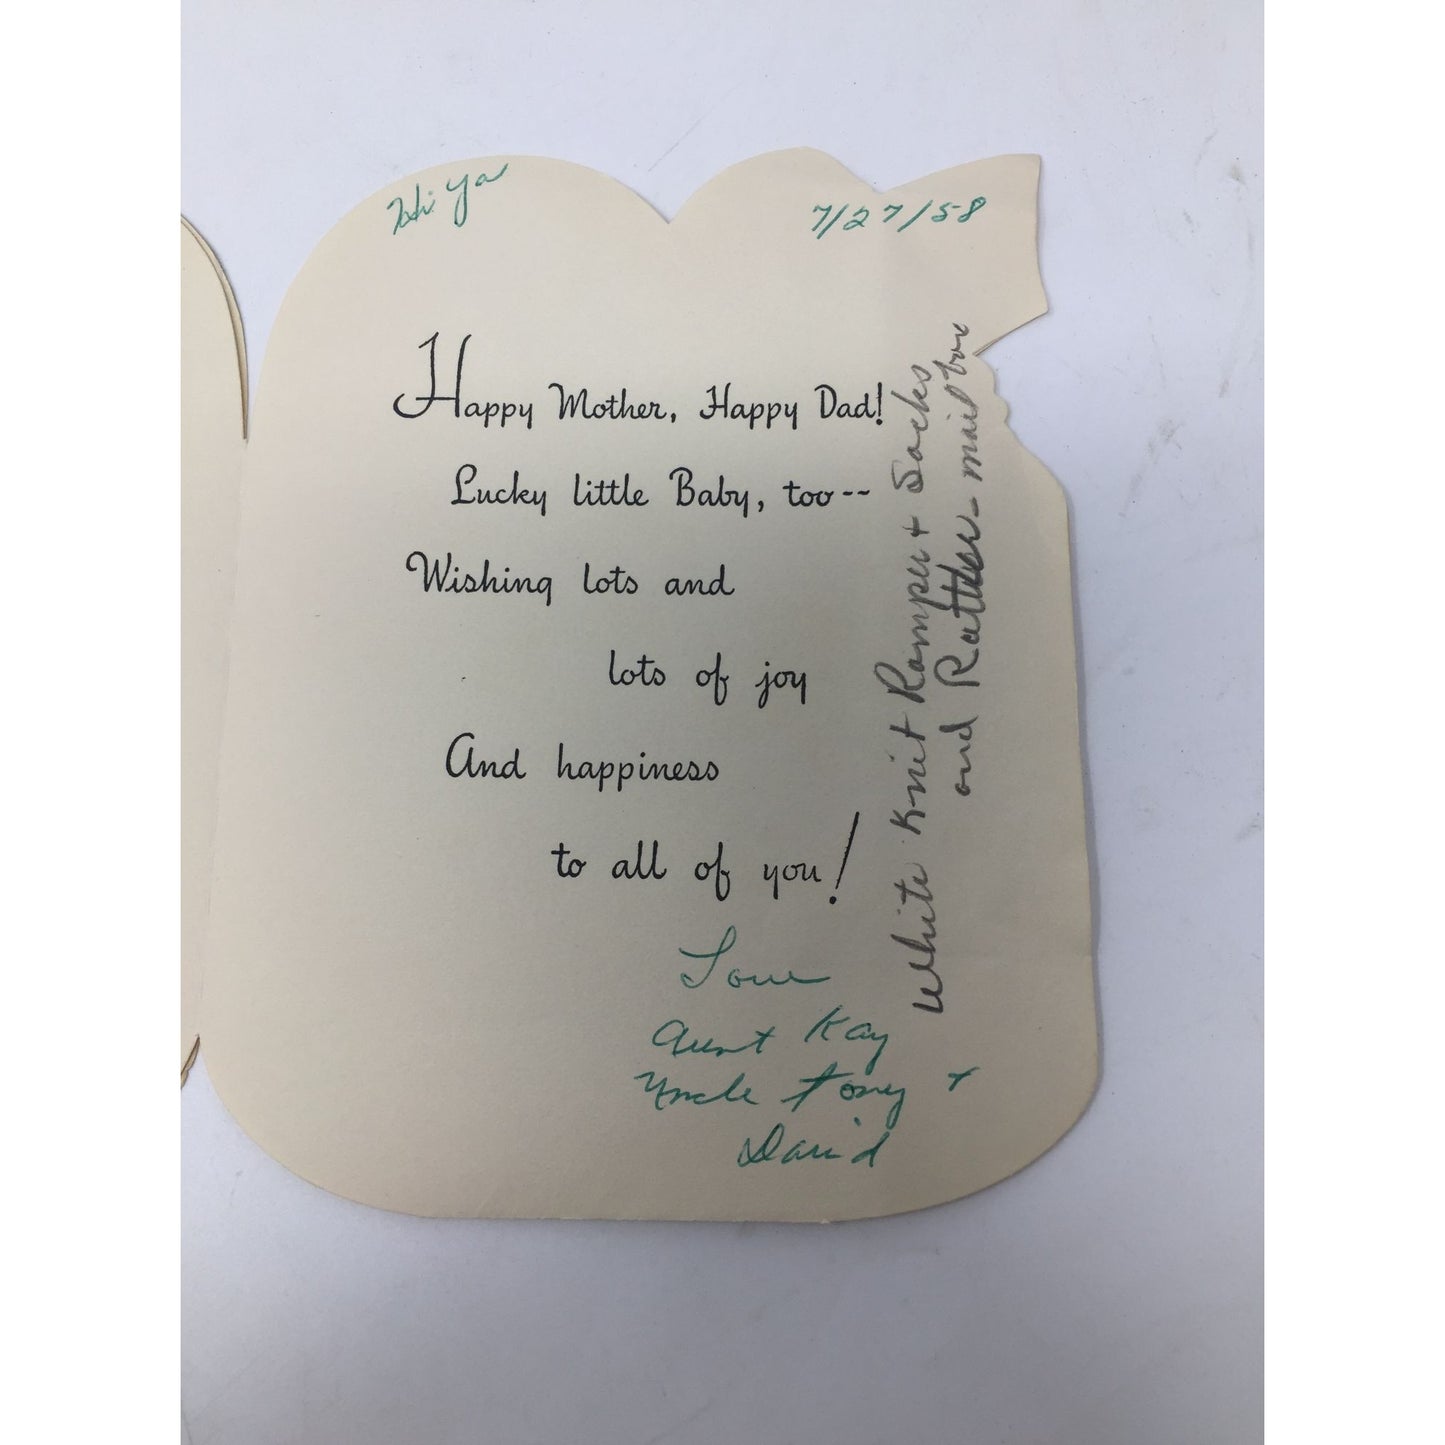 Hi Ya
7/27/58
Happy Mother, Happy Dad!
Lucky little Baby, too--
Wishing lots and
lots of joy
And happiness
to all of you!
Love
Aunt Kay
Uncle Tony +
David
White Knit Romper + Socks
and Rattler - mail box